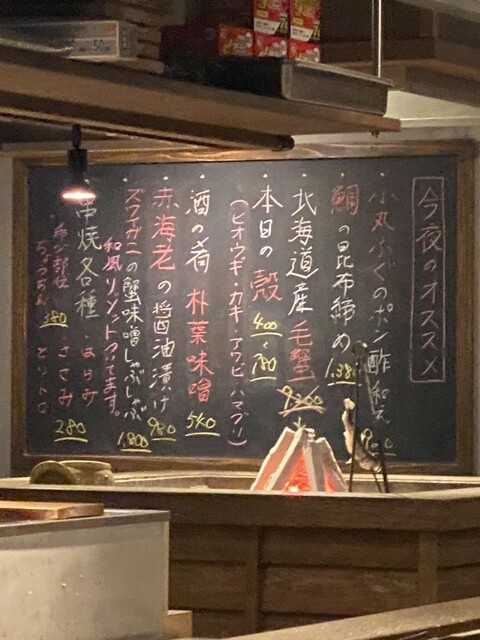 今夜のオススメ
小丸ふぐのポン酢和え
900
鯛の昆布締め
1.380
北海道産毛蟹
9.200
本日の殻
400~780
(ヒオウギ・カキ・アワビ・ハマグリ)
酒の肴 朴葉味噌
540
赤海老の醤油漬け
980
ズワガニの蟹味噌しゃぶしゃぶ
1.800
和風リゾットついてます。
串焼各種・はらみ
280
希少部位・ささみ
380
ちょうちん・とりトロ